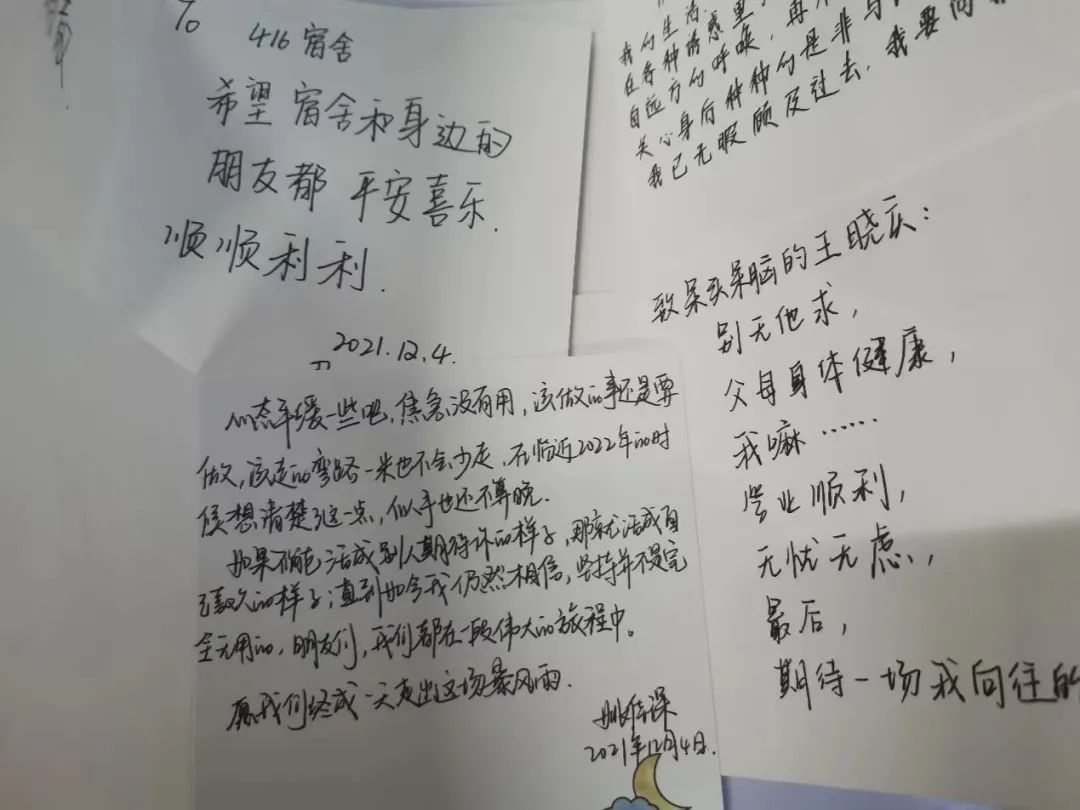 To
416宿舍
希望宿舍和身边的
朋友都 平安喜乐.
顺顺利利.
2021.12.4.
我的生活.
在各种诱惑里
自远方的呼唤,再
关心身后种种的是非与
我已无暇顾及过去,我要向前
致呆头呆脑的王晓庆:
别无他求,
父母身体健康,
我嘛……
学业顺利,
无忧无虑,
最后,
期待一场我向往的
心态平缓一些吧,焦急没有用,该做的事还是要
做,该走的弯路一米也不会少走,在临近2022年的时
候想清楚了这一点,似乎也还不算晚.
如果不能活成别人期待你的样子,那就活成自
己喜欢的样子;直到如今我仍然相信,坚持并不是完
全无用的,朋友们,我们都在一段伟大的旅程中。
愿我们终成一天走出这场暴风雨.
2021年12月4日.